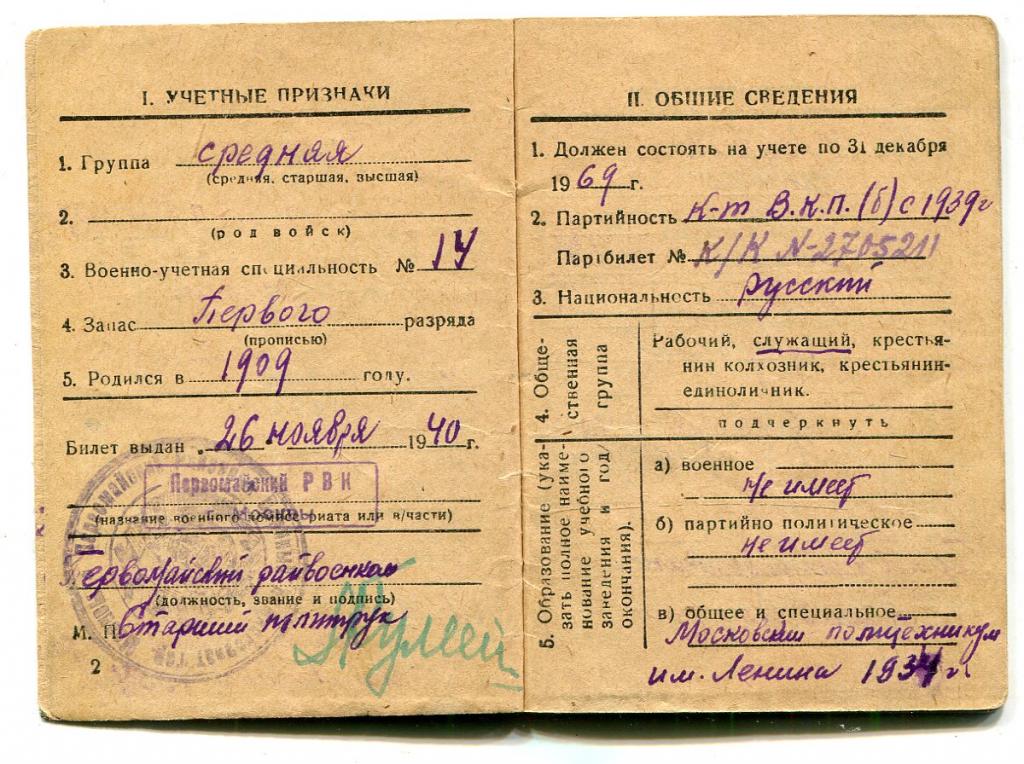 I. УЧЕТНЫЕ ПРИЗНАКИ
1. Группа средная
(средняя, старшая, высшая)
2.
(род войск)
3. Военно-учетная специальность № 14
4. Запас Первого разряда
(прописью)
5. Родился в 1909 году.
Билет выдан 26 ноября 1940 г.
Первомайский РВК
г. Москвы
(название военного комиссариата или в/части)
Первомайский райвоенком
(должность, звание и подпись)
М. П. Старший политрук
2
II. ОБЩИЕ СВЕДЕНИЯ
1. Должен состоять на учете по 31 декабря
1969 г.
2. Партийность К-т В.К.П.(б) с 1939 г
Партбилет № К/К N-2705211
3. Национальность русский
4. Общественная группа
Рабочий, служащий, крестья-
нин колхозник, крестьянин-
единоличник.
подчеркнуть
5. Образование (ука-
зать полное наиме-
нование учебного
заведения и год
окончания).
а) военное
не имеет
б) партийно политическое
не имеет
в) общее и специальное
Московский политехникум
им. Ленина 1934 г.